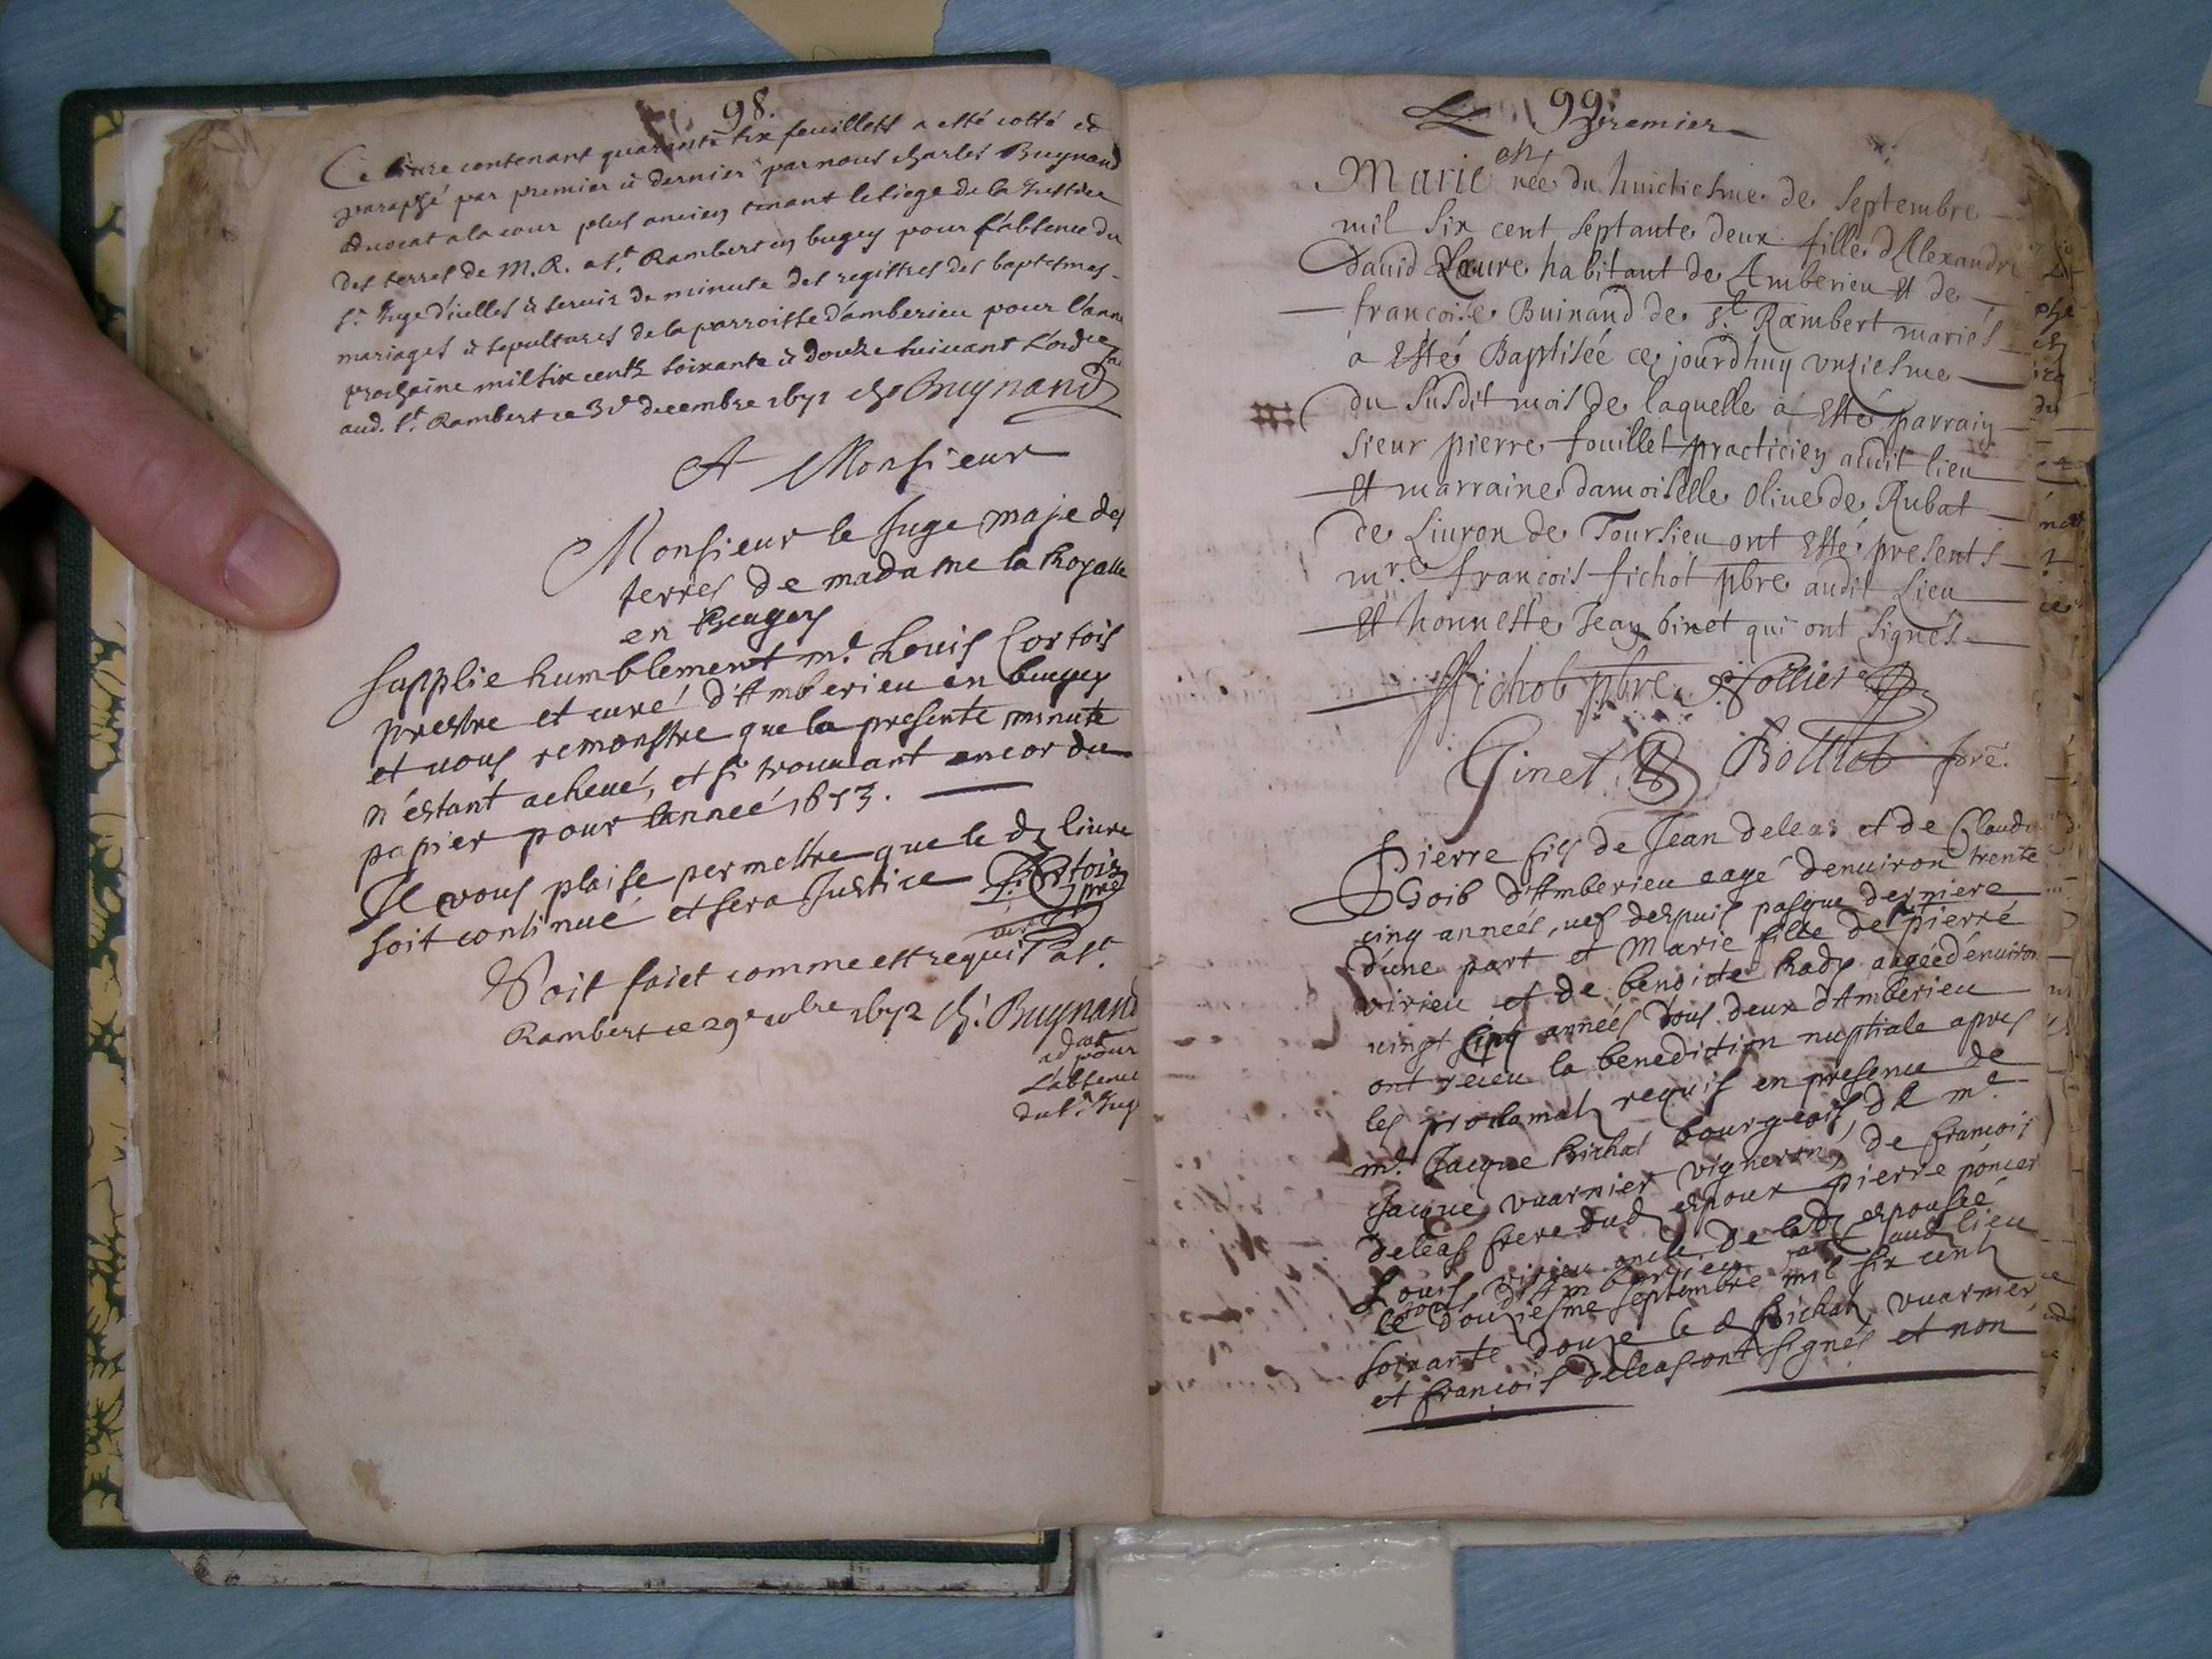 98.
Ce liure contenant quarante six feuillets a esté cotté et
paraphé par premier et dernier par nous Charles Bugnand
aduocat a la cour plus ancien tenant le siege de la Justice
des terres de M.R. a St. Rambert en bugey pour l'absence du
sr. Juge d'icelles et seruir de minute des registres des baptesmes
mariages et sepultures de la parroisse d'amberieu pour l'année
prochaine mil six centz soixante et douze suiuant l'ordre
aud. St. Rambert ce 3e decembre 1671 Ch Bugnand
A Monsieur
Monsieur le Juge maje des
terres de madame la Royalle
en Beugey
supplie humblement mre Louis Cortois
prestre et curé d'Amberieu en beugey
et vous remonstre que la presente minute
n'estant acheué, et si trouuant encor du
papier pour l'anneé 1673.
Il vous plaise permettre que le d livre
soit continué et sera Justice L. Cortois
pre
curé
Soit faict comme est requis a St.
Rambert ce 29e 1672 Ch. Bugnand
adat
pour
L'absence
du sr. Juge
99.
premier
Marie née du huictiesme de septembre
mil six cent septante deux fille d'Alexandre
Dauid Faeure habitant de Amberieu et de
francoise Buinand de St. Rambert mariés
a Esté Baptisée ce jourdhuy vnziesme
du susdit mois de laquelle a Esté parrain
sieur pierre fouillet practicien audit lieu
Et marraine damoiselle oliue de Rubat
de Liuron de Toursieu ont Esté presents
mre. françois fichot pbre audit Lieu
Et honneste Jean binet qui ont signés
Fichot pbre
Ginet
Pierre fils de Jean deleas et de Claudа
Goib d'Amberieu aagé denuiron trente
cinq anneés, uef despuis pasque derniere
d'une part et Marie fille de pierre
virieu et de benoite Rady aageé d'enuiron
vingt cinq anneés tous deux d'Amberieu
ont receu la benediction nuptiale apres
les proclamatz requis en presence de
mre Jacque Richat bourgeois, de mre
Jacque vuarnier vigneron, de francois
deleas frere dud espoux pierre poncer
Louis virieu oncle de lad espousée
tous d'Amberieu aud lieu
ce douziesme septembre mil six centz
soixante douze le d Richat, vuarnier
et francois deleas ont signés et non